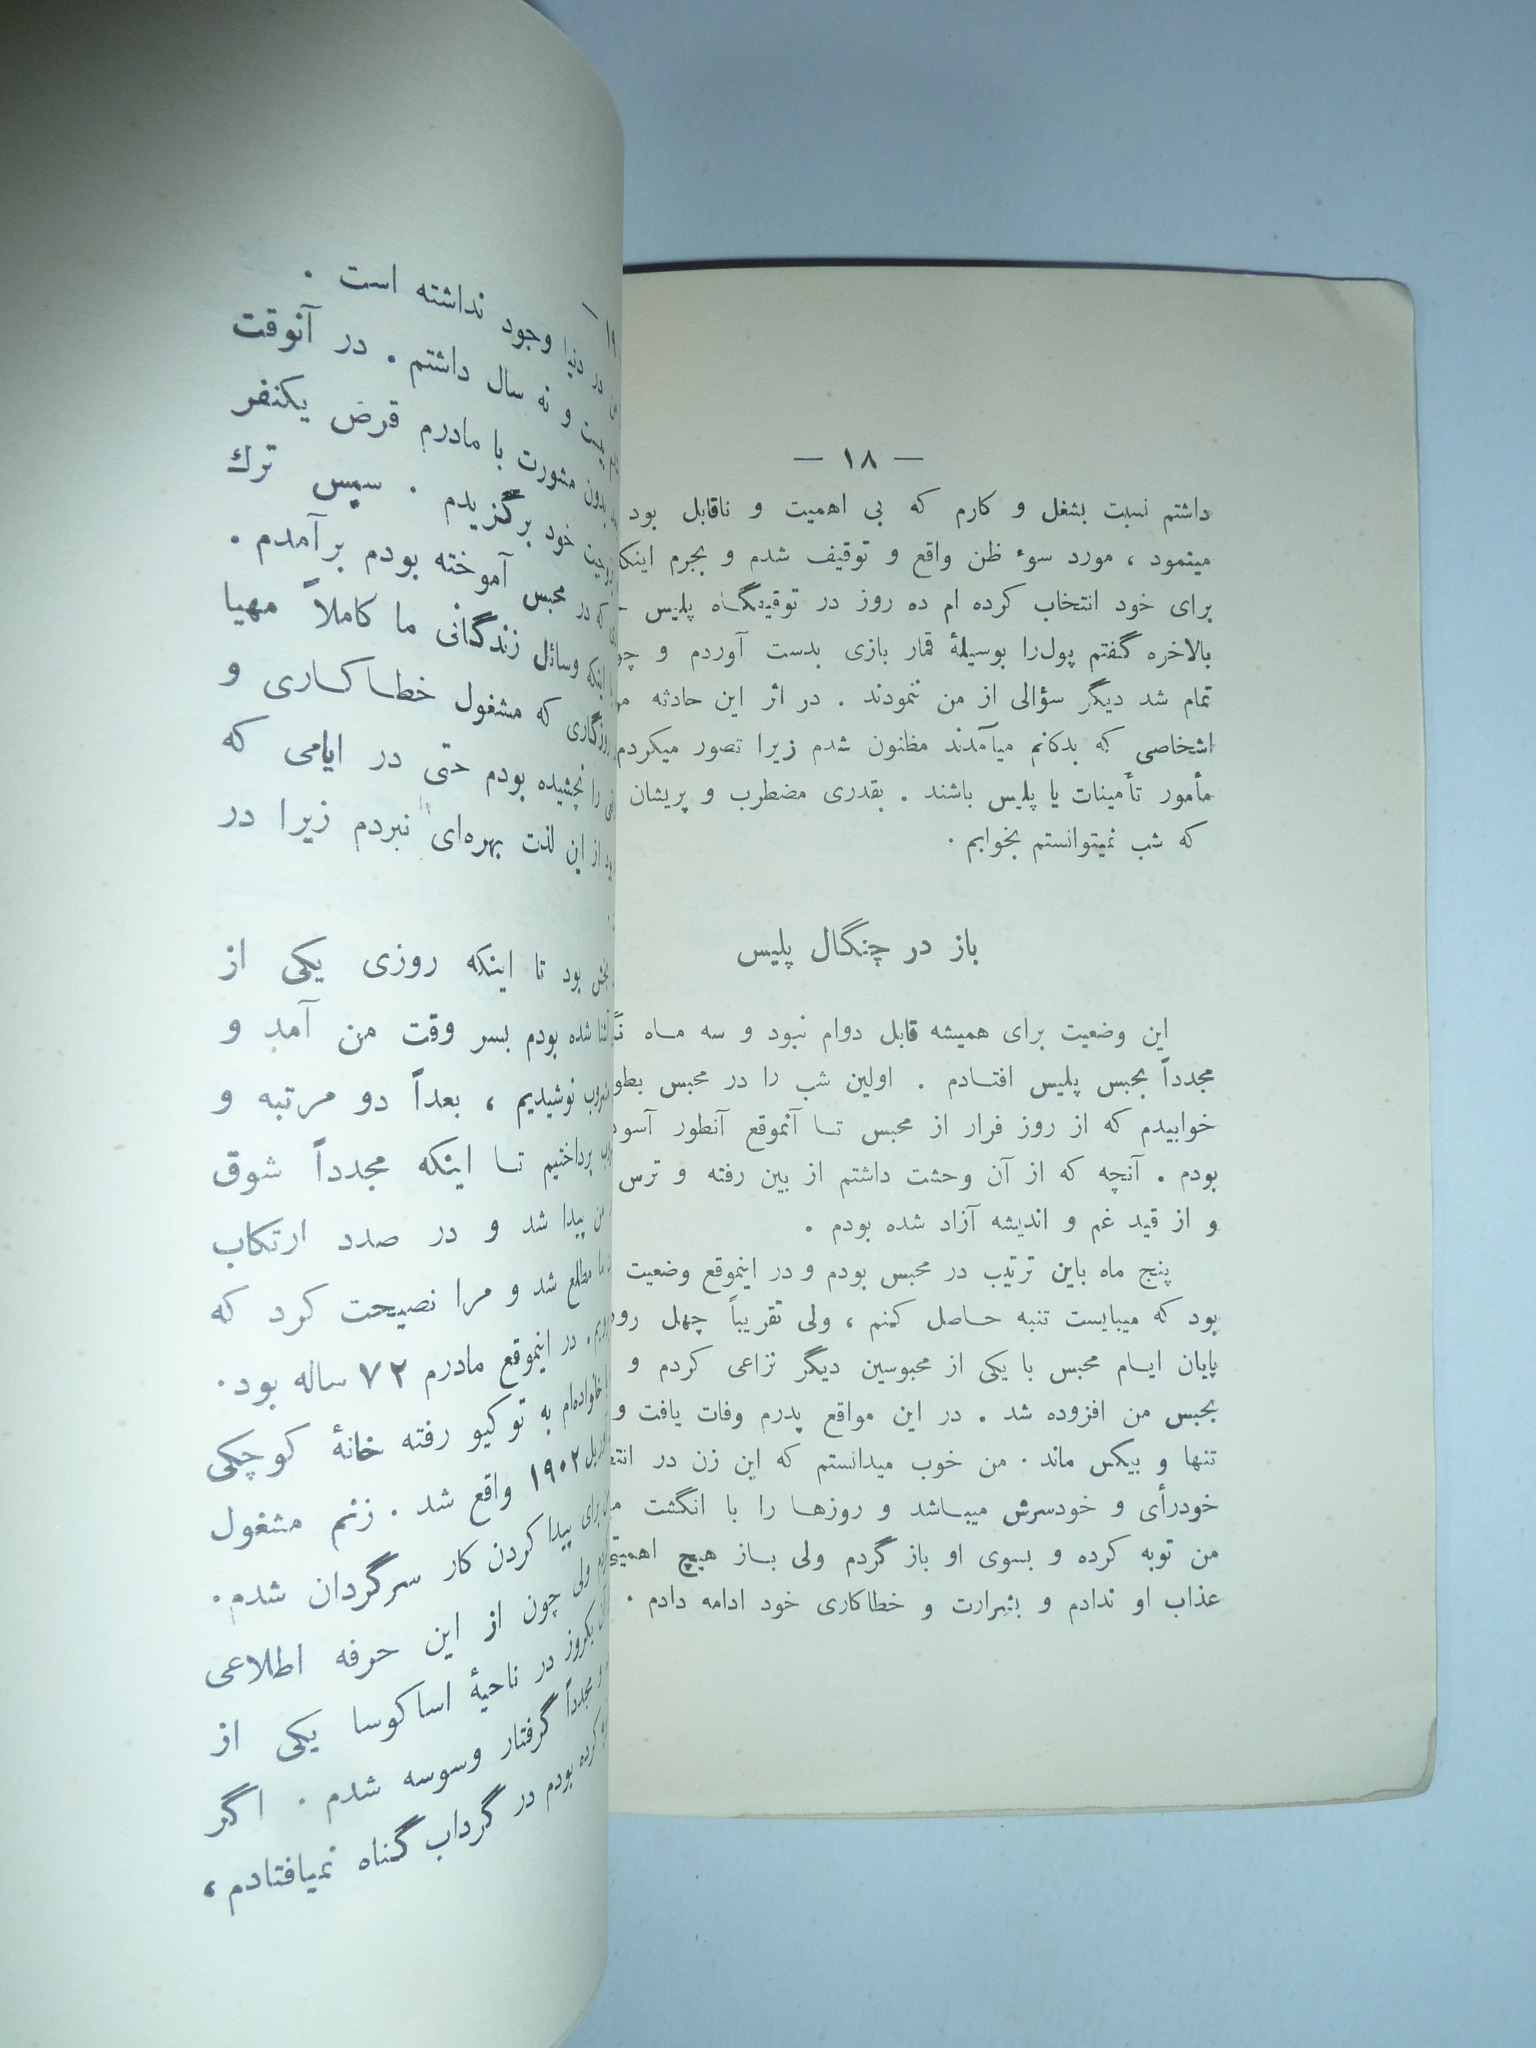 — ۱۸ —
داشتم نسبت بشغل و کارم که بی اهمیت و ناقابل بود
مینمود ، مورد سوء ظن واقع و توقیف شدم و بجرم
برای خود انتخاب کرده ام ده روز در توقیفگاه پلیس
بالاخره گفتم پول‌را بوسیلهٔ قمار بازی بدست آوردم و
تمام شد دیگر سؤالی از من ننمودند . در اثر این حادثه
اشخاصی که بدکانم میآمدند مظنون شدم زیرا تصور میکردم
مأمور تأمینات یا پلیس باشند . بقدری مضطرب و پریشان
که شب نمیتوانستم بخوابم .
باز در چنگال پلیس
این وضعیت برای همیشه قابل دوام نبود و سه ماه
مجدداً بحبس پلیس افتادم . اولین شب را در محبس
خوابیدم که از روز فرار از محبس تا آنموقع آنطور
بودم . آنچه که از آن وحشت داشتم از بین رفته و ترس
و از قید غم و اندیشه آزاد شده بودم .
پنج ماه باین ترتیب در محبس بودم و در اینموقع وضعیت
بود که میبایست تنبه حاصل کنم ، ولی تقریباً چهل
پایان ایام محبس با یکی از محبوسین دیگر نزاعی کردم و
بحبس من افزوده شد . در این مواقع پدرم وفات یافت و
تنها و بیکس ماند . من خوب میدانستم که این زن در
خودرأی و خودسرش میباشد و روزها را با انگشت
من توبه کرده و بسوی او باز گردم ولی باز هیچ
عذاب او ندادم و بشرارت و خطاکاری خود ادامه دادم .
در دنیا وجود نداشته است .
بیست و نه سال داشتم . در آنوقت
بدون مشورت با مادرم قرض یکنفر
خود برگزیدم . سپس ترك
که در محبس آموخته بودم برآمدم .
اینکه وسائل زندگانی ما کاملاً مهیا
که مشغول خطاکاری و
را نچشیده بودم حتی در ایامی که
از این لذت بهره‌ای نبردم زیرا در
بود تا اینکه روزی یکی از
شده بودم بسر وقت من آمد و
نوشیدیم ، بعداً دو مرتبه و
پرداختیم تا اینکه مجدداً شوق
من پیدا شد و در صدد ارتکاب
مطلع شد و مرا نصیحت کرد که
در اینموقع مادرم ۷۲ ساله بود.
به توکیو رفته خانهٔ کوچکی
۱۹۰۲ واقع شد . زنم مشغول
برای پیدا کردن کار سرگردان شدم.
ولی چون از این حرفه اطلاعی
یکروز در ناحیهٔ اساکوسا یکی از
مجدداً گرفتار وسوسه شدم . اگر
کرده بودم در گرداب گناه نمیافتادم ،